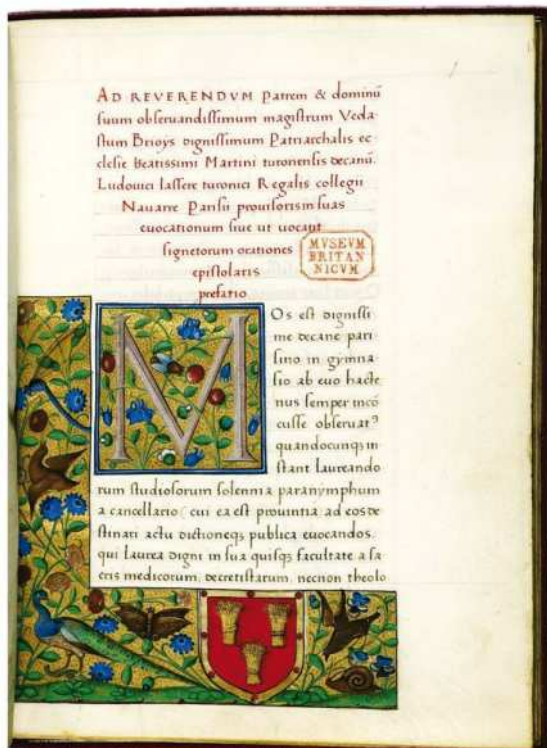 AD REVERENDVM Patrem & dominū
suum obseruandissimum magistrum Veda
stum Brioys dignissimum Patriarchalis ec
clesie beatissimi Martini turonensis decanū.
Ludouici lassere turonici Regalis collegii
Nauarre Parisii prouisorisin suas
euocationum siue ut uocant
signetorum orationes
epistolaris
prefatio
MVSEVM
BRITAN
NICVM
MOs est dignissi
me decane pari
sino in gymna
sio ab euo hacte
nus semper incō
cusse obseruatꝰ
quandocunqꝫ in
stant laureando
rum studiosorum solennia paranymphum
a cancellario (cui ea est prouintia ad eos de
stinari actu dictioneqꝫ publica euocandos.
qui laurea digni in sua quisqꝫ facultate a sa
cris medicorum, decretistarum, necnon theolo